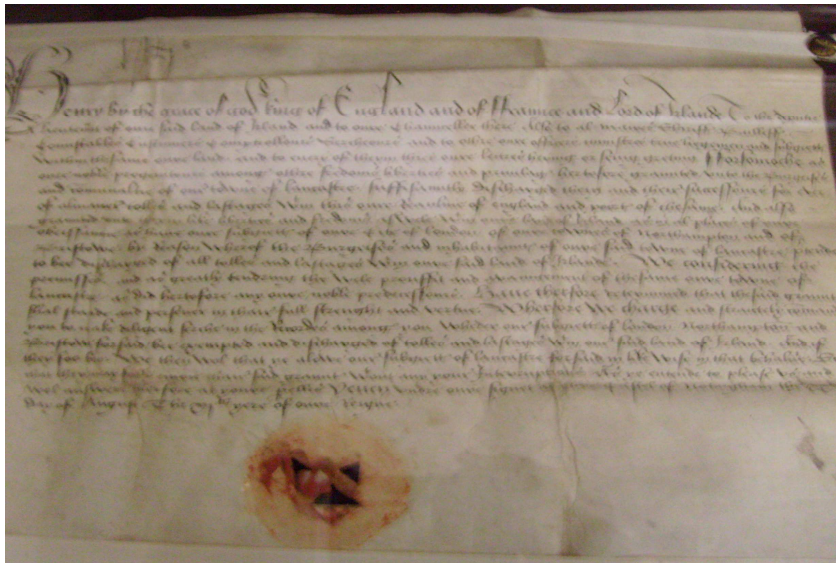 Henry by the grace of god king of England and of ffraunce and lord of Irland To the deputie
lieutenant of oure said land of Irland and to oure Chaunceller there Also to al maires Shireffs Bailliffs
Constables Customers Comptrollers and to other oure officers ministres true liegemen and subgietts
within thesame oure land and to every of thiem thies oure lettres hering or seing greting Forsomoche as
oure noble progenitours among other fredoms liberties and privileges hertofore graunted unto the Burgeises
and of oure towne of lancastre sufficiently discharged theim and their successours for ever
of almaner tolles and lastages within this oure Realme of england and ports of thesame And also
graunted unto theim like liberties and fredoms aswele within oure land of Irland as in al places of oure
obeissance as have oure subgietts of oure Citie of london of oure townes of Northampton and of
Bristowe by reason wherof the Burgeises and inhabitants of oure said towne of lancastre
to bee discharged of all tolles and lastages within oure said land of Irland We considering the
premisses and as greatly tendring the wele prouffit and of thesame oure towne of
lancastre as did hertofore any oure noble predecessours Have therfore determined that the said graunts
shal stande and perseuer in thair full strenght and vertue Wherfore we charge and straitely
you to make diligent serche in the Recordes among you wheder oure subgietts of london Northampton and
Bristow forsaid bee accepted and discharged of tolles and lastages within oure said land of Irland And if
they soo bee We then wol that ye alowe oure subgietts of lancastre forsaid in like wise in that behalve
according to oure said graunts without any your Interrupcion As ye entende to please us and
wol answere therfore at youre perilles Yeven undre oure signet at oure Castel of Notingham the
day of August The xj yere of oure Reigne